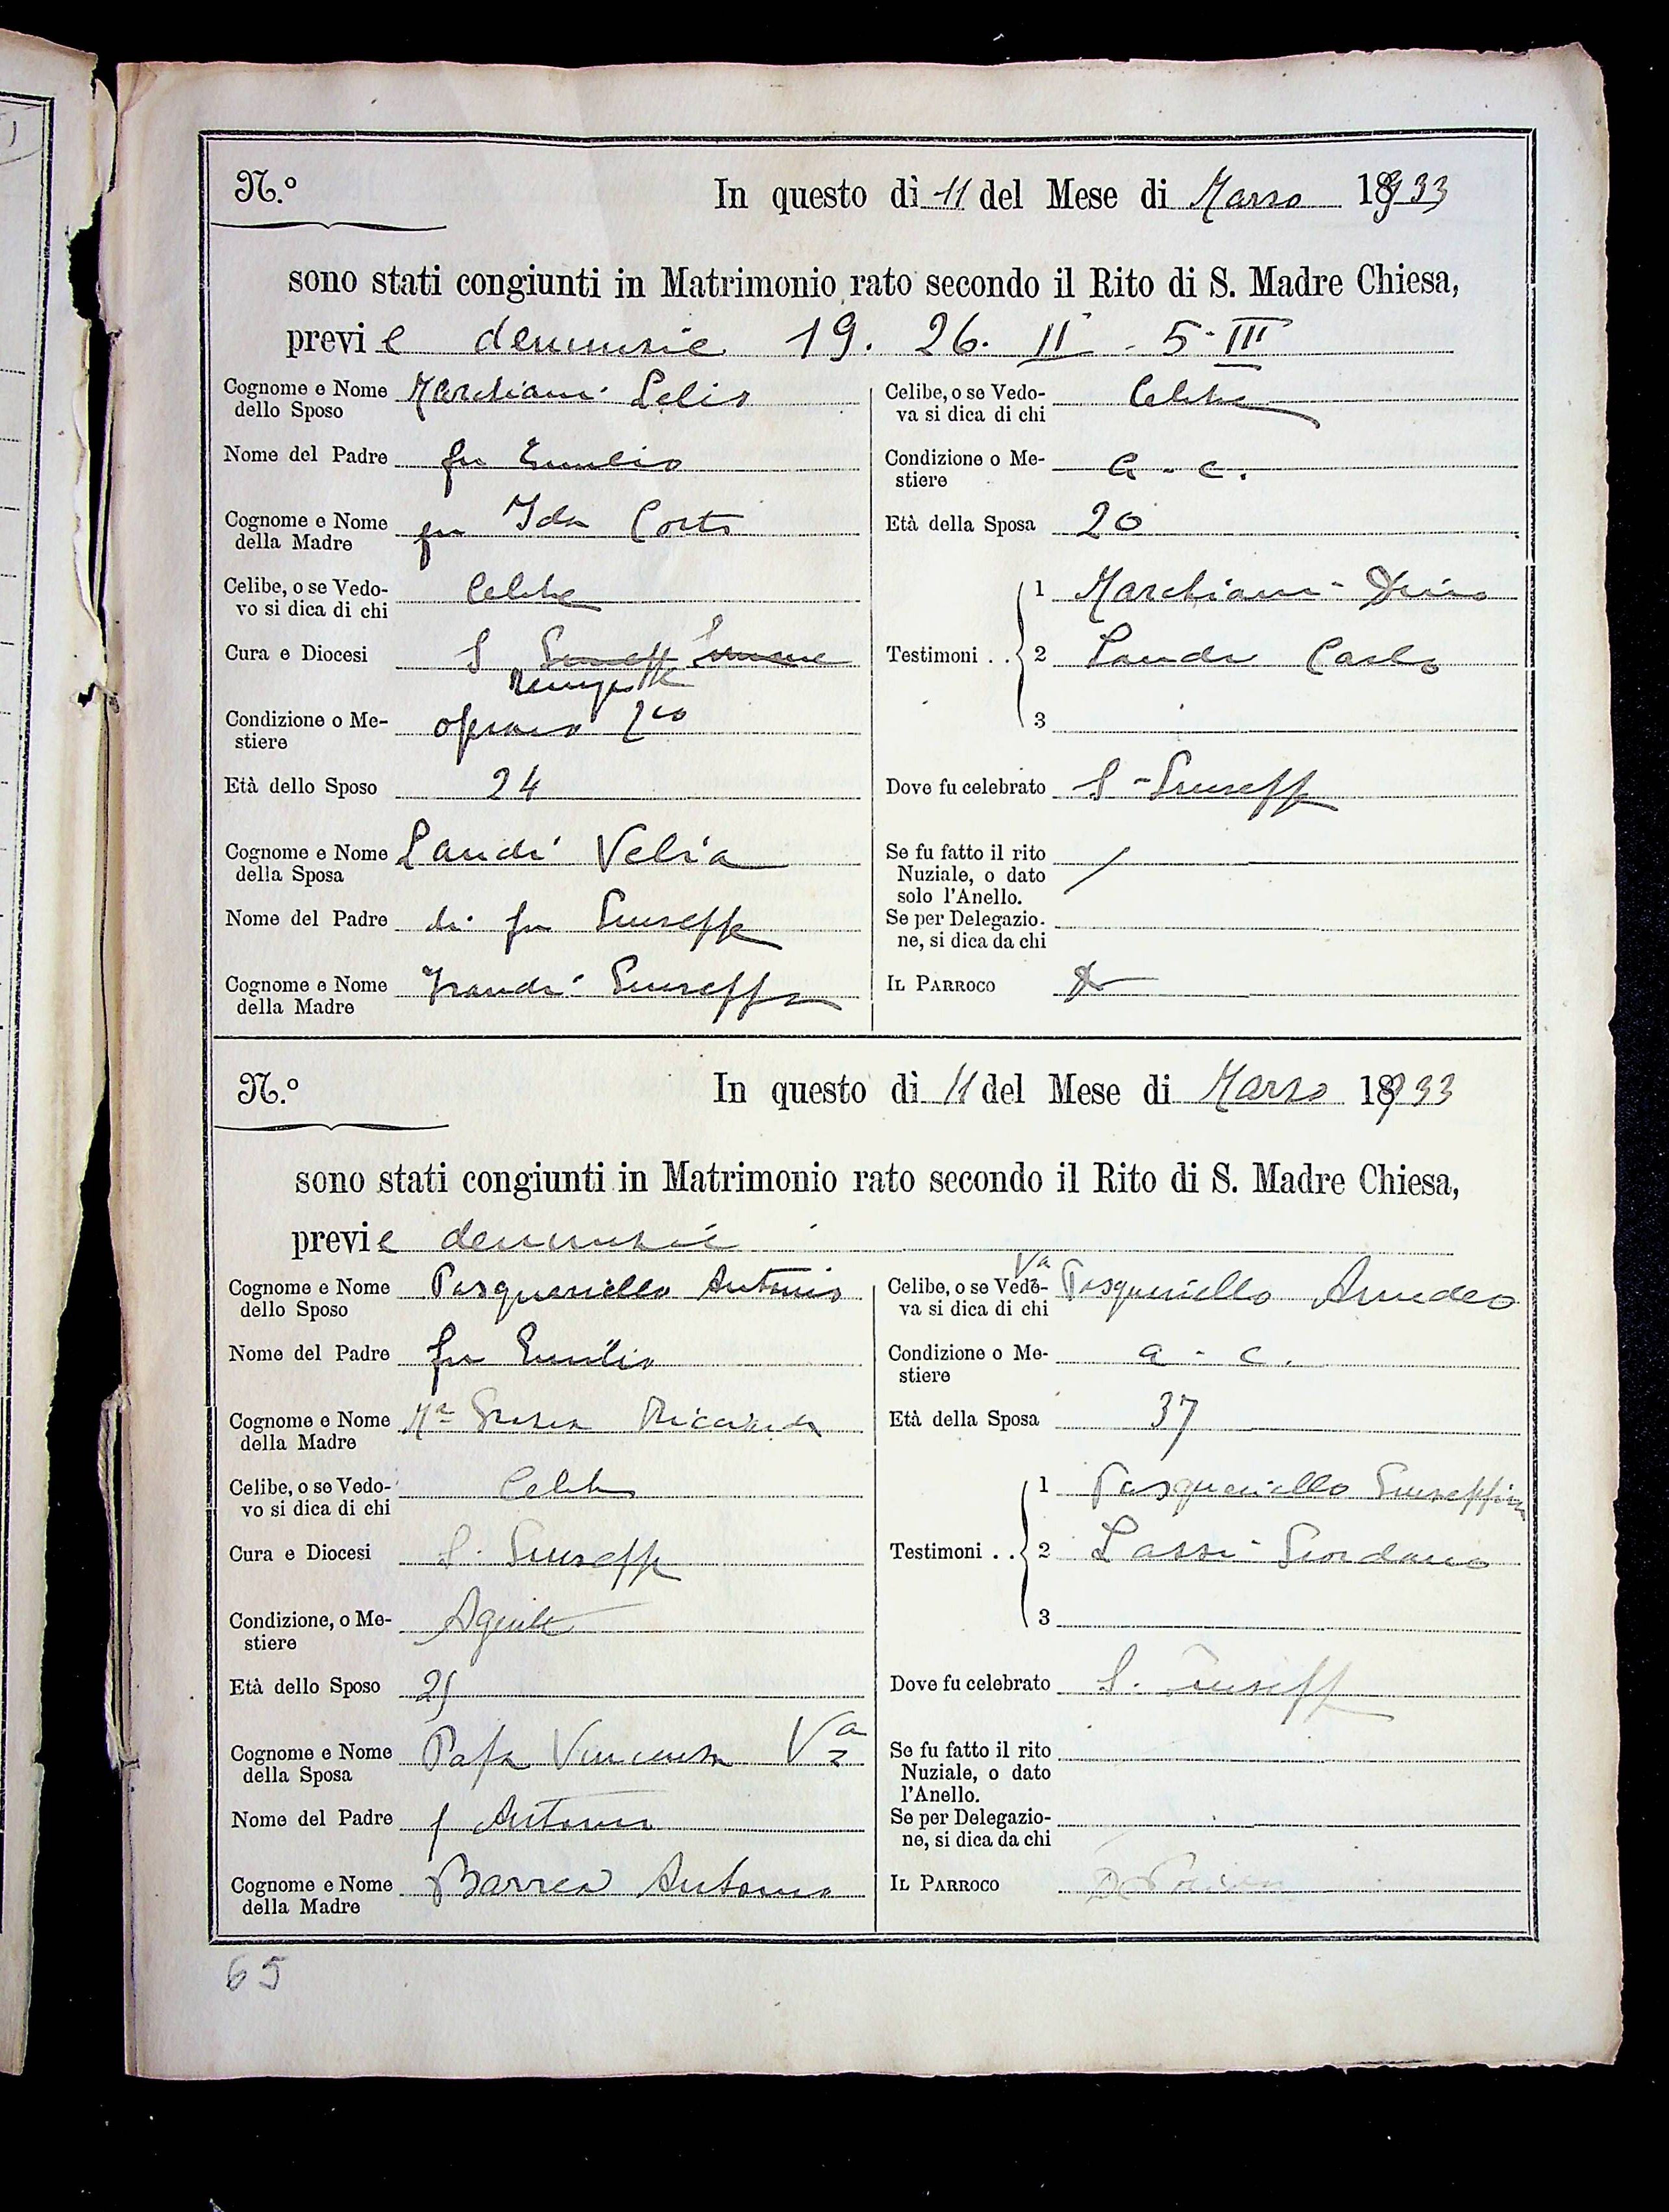 N.º In questo dì 11 del Mese di Marzo 1933
sono stati congiunti in Matrimonio rato secondo il Rito di S. Madre Chiesa,
previe denunzie 19. 26. II - 5 - III
Cognome e Nome dello Sposo Marchiani Lelio
Nome del Padre fu Emilio
Cognome e Nome della Madre fu Ida Corti
Celibe, o se Vedovo si dica di chi Celibe
Cura e Diocesi S
Condizione o Mestiere operaio
Età dello Sposo 24
Cognome e Nome della Sposa Landi Velia
Nome del Padre di fu Giuseppe
Cognome e Nome della Madre Giuseppa
Celibe, o se Vedova si dica di chi Celibe
Condizione o Mestiere a - c.
Età della Sposa 20
Testimoni . . 1 Marchiani Dino
2 Landi Carlo
3
Dove fu celebrato S - Giuseppe
Se fu fatto il rito Nuziale, o dato solo l'Anello.
Se per Delegazione, si dica da chi
Il Parroco
N.º In questo dì 11 del Mese di Marzo 1933
sono stati congiunti in Matrimonio rato secondo il Rito di S. Madre Chiesa,
previe denunzie
Cognome e Nome dello Sposo Pasquariello Antonio
Nome del Padre fu Emilio
Cognome e Nome della Madre Mª Grazia
Celibe, o se Vedovo si dica di chi Celibe
Cura e Diocesi S. Giuseppe
Condizione, o Mestiere Agente
Età dello Sposo 25
Cognome e Nome della Sposa Papa Vincenza Vª
Nome del Padre f Antonio
Cognome e Nome della Madre Barrea Antonia
Celibe, o se Vedova si dica di chi Vª Pasquariello Amedeo
Condizione o Mestiere a - c.
Età della Sposa 37
Testimoni . . 1 Pasquariello Giuseppina
2 Lassi Giordano
3
Dove fu celebrato S. Giuseppe
Se fu fatto il rito Nuziale, o dato l'Anello.
Se per Delegazione, si dica da chi
Il Parroco
65